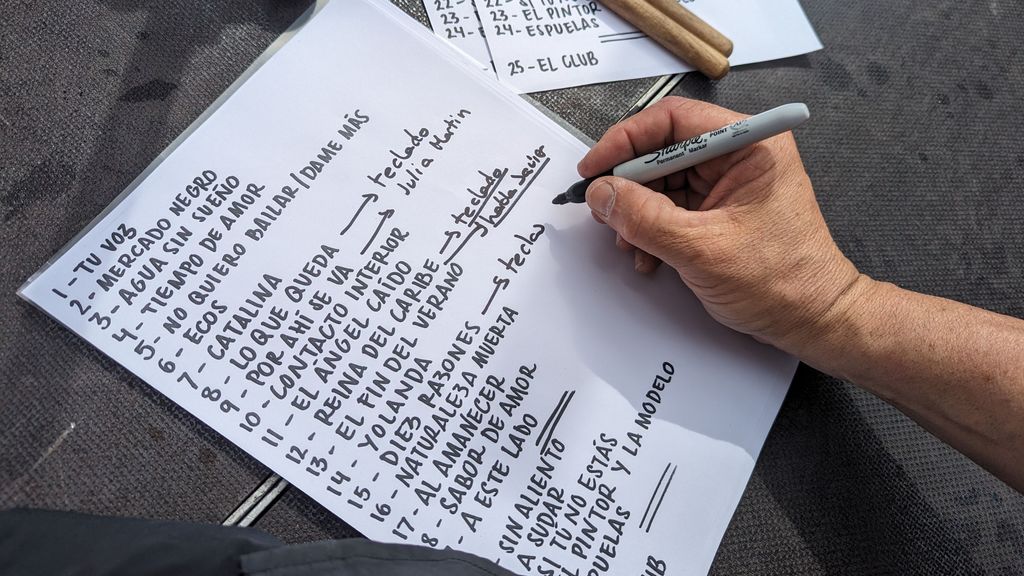 22-
23-
24-
23- EL PINTOR
24- ESPUELAS
25- EL CLUB
1- TU VOZ
2- MERCADO NEGRO
3- AGUA SIN SUEÑO
4- TIEMPO DE AMOR
5- NO QUIERO BAILAR/DAME MÁS
6- ECOS
7- CATALINA
8- LO QUE QUEDA → teclado
9- POR AHÍ SE VA → Julia Martin
10- CONTACTO INTERIOR
11- EL ÁNGEL CAÍDO
12- REINA DEL CARIBE → teclado
13- EL FIN DEL VERANO
14- YOLANDA
15- DIEZ RAZONES → tecla
16- NATURALEZA MUERTA
17- AL AMANECER
8- SABOR DE AMOR
- A ESTE LADO
SIN ALIENTO
A SUDAR
SI TU NO ESTÁS
PINTOR Y LA MODELO
PUELAS
UB
Sharpie
Permanent Marker
POINT